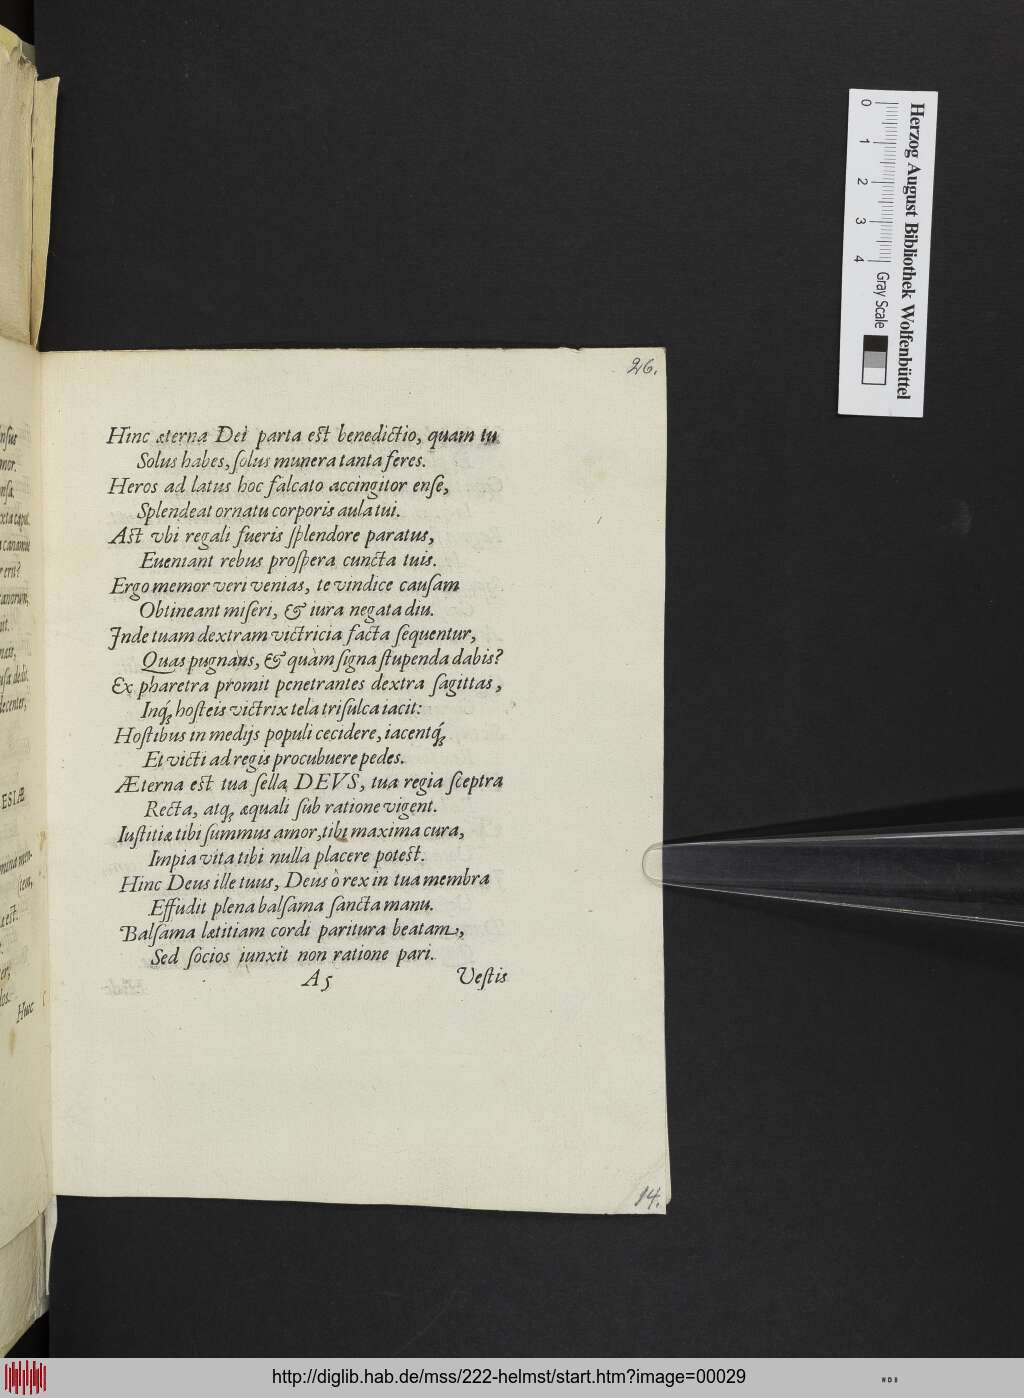 26.
Hinc æterna Dei parta est benedictio, quam tu
Solus habes, solus munera tanta feres.
Heros ad latus hoc falcato accingitor ense,
Splendeat ornatu corporis aula tui.
Ast vbi regali fueris splendore paratus,
Eueniant rebus prospera cuncta tuis.
Ergo memor veri venias, te vindice causam
Obtineant miseri, & iura negata diu.
Inde tuam dextram victricia facta sequentur,
Quas pugnans, & quàm signa stupenda dabis?
Ex pharetra promit penetrantes dextra sagittas,
Inq́; hosteis victrix tela trisulca iacit:
Hostibus in medijs populi cecidere, iacentq́;
Et victi ad regis procubuere pedes.
Æterna est tua sella, DEVS, tua regia sceptra
Recta, atq; æquali sub ratione vigent.
Iustitiæ tibi summus amor, tibi maxima cura,
Impia vita tibi nulla placere potest.
Hinc Deus ille tuus, Deus ò rex in tua membra
Effudit plena balsama sancta manu.
Balsama lætitiam cordi paritura beatam,
Sed socios iunxit non ratione pari.
A 5 Vestis
14.
ESIÆ
Huic
Herzog August Bibliothek Wolfenbüttel
0 1 2 3 4 Gray Scale
http://diglib.hab.de/mss/222-helmst/start.htm?image=00029